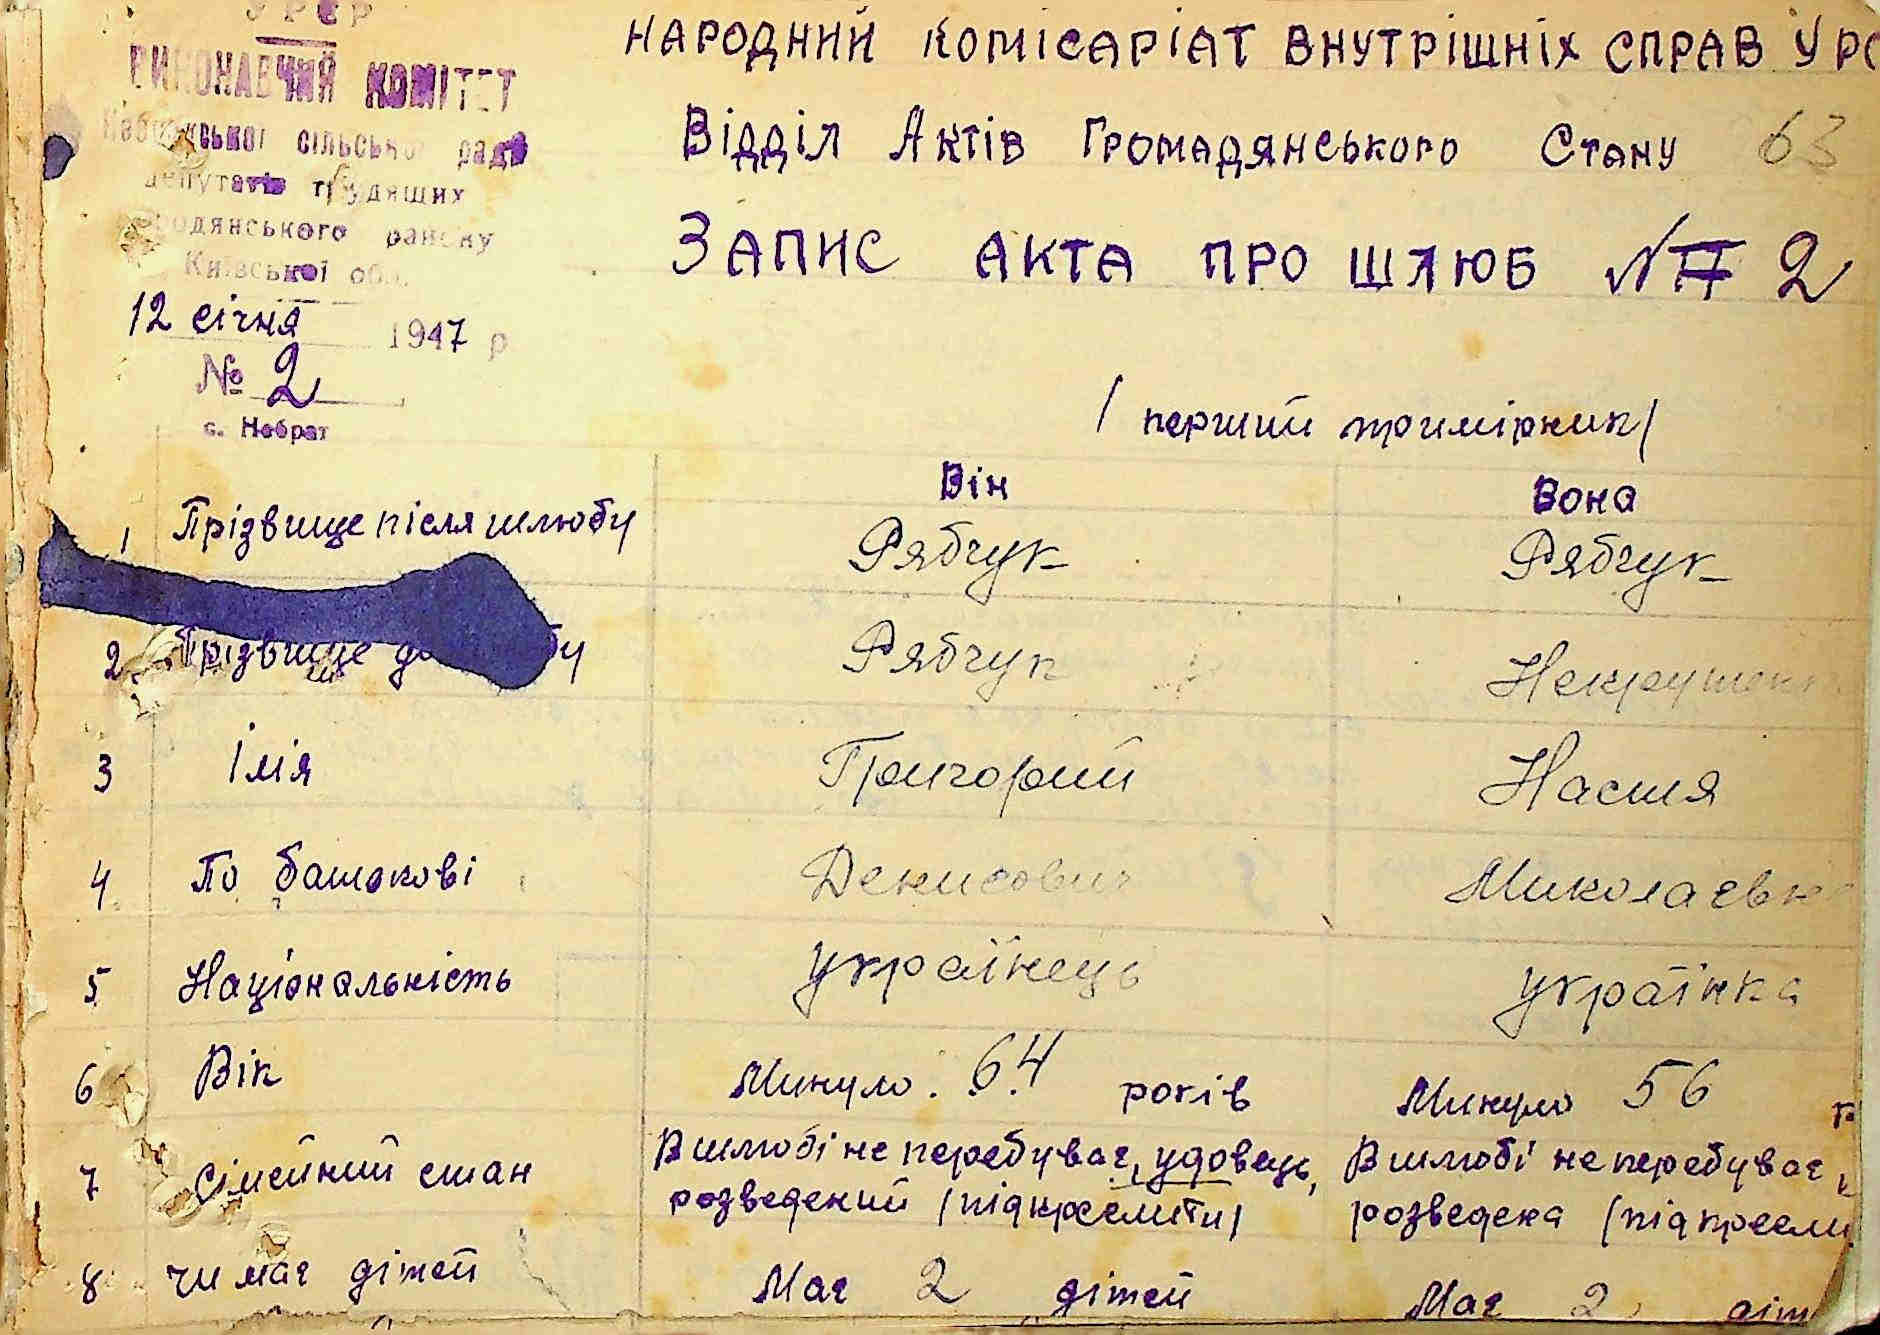 УРСР
ВИКОНАВЧИЙ КОМІТЕТ
сільської ради
депутатів трудящих
Бородянського району
Київської обл.
12 січня 1947 р
№ 2
с. Небрат
НАРОДНИЙ КОМІСАРІАТ ВНУТРІШНІХ СПРАВ УРС
Відділ Актів Громадянського Стану 63
Запис акта про шлюб № 2
/перший примірник/
Він Вона
1 Прізвище після шлюбу Рябчук Рябчук
2 Прізвище до Рябчук
3 Імія Григорий Настя
4. По батькові Денисович Миколаєвн
5 Національність українець українка
6 Вік Минуло 64 років Минуло 56
7 Сімейний стан В шлюбі не перебував, удовець, В шлюбі не перебував
розведений /підкреслити/ розведена /підкресли
8 чи має дітей Має 2 дітей Має 2 діт